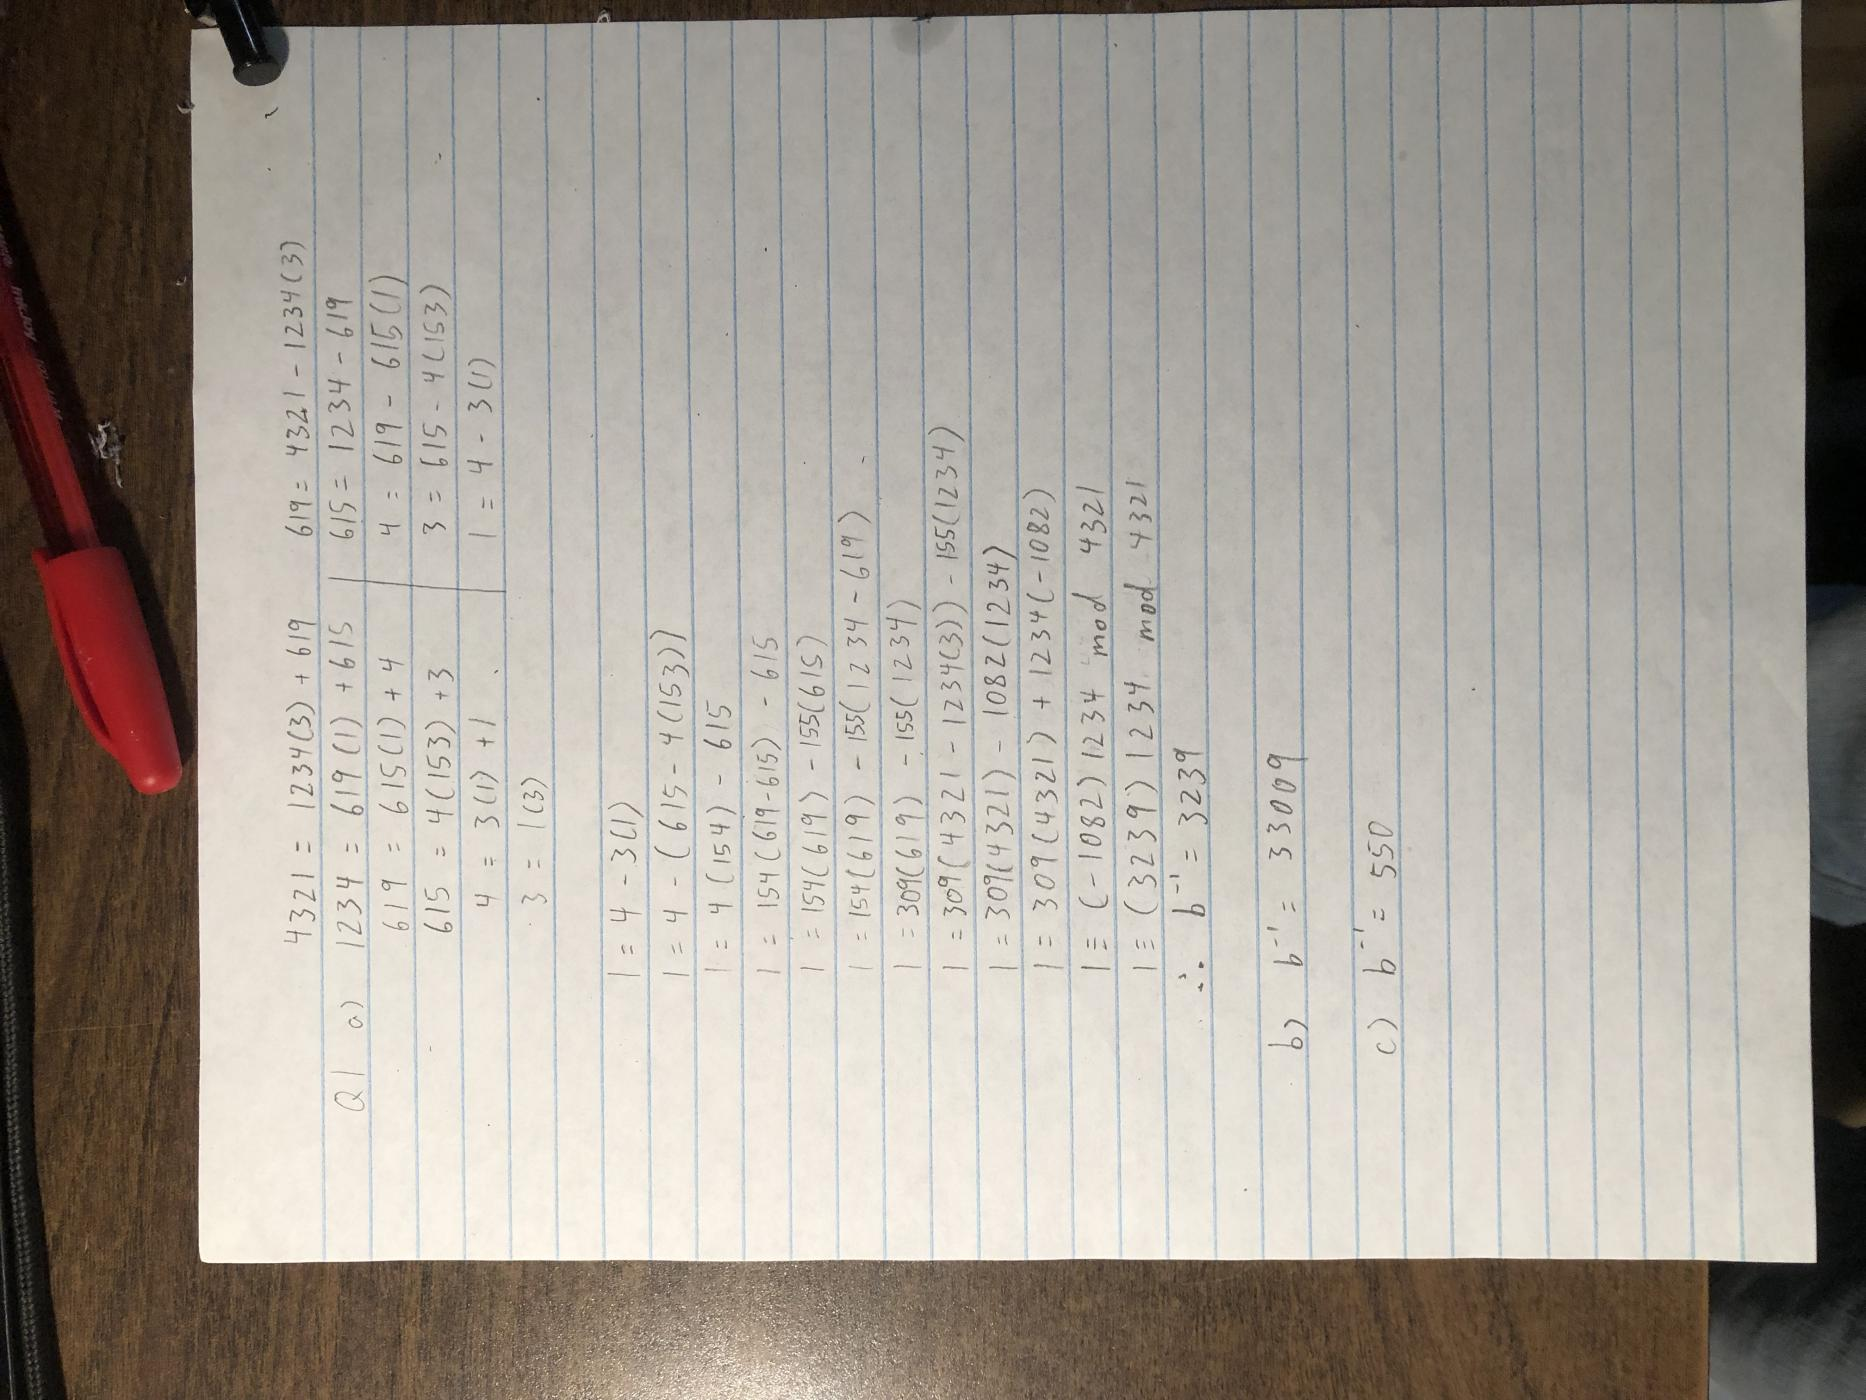 4321 = 1234(3) + 619 619 = 4321 - 1234(3)
Q1 a) 1234 = 619(1) + 615 | 615 = 1234 - 619
619 = 615(1) + 4 | 4 = 619 - 615(1)
615 = 4(153) + 3 | 3 = 615 - 4(153)
4 = 3(1) + 1 | 1 = 4 - 3(1)
3 = 1(3)
1 = 4 - 3(1)
1 = 4 - (615 - 4(153))
1 = 4(154) - 615
1 = 154(619-615) - 615
1 = 154(619) - 155(615)
1 = 154(619) - 155(1234 - 619)
1 = 309(619) - 155(1234)
1 = 309(4321 - 1234(3)) - 155(1234)
1 = 309(4321) - 1082(1234)
1 = 309(4321) + 1234(-1082)
1 ≡ (-1082)1234 mod 4321
1 ≡ (3239)1234 mod 4321
∴ b⁻¹ = 3239
b) b⁻¹ = 33009
c) b⁻¹ = 550